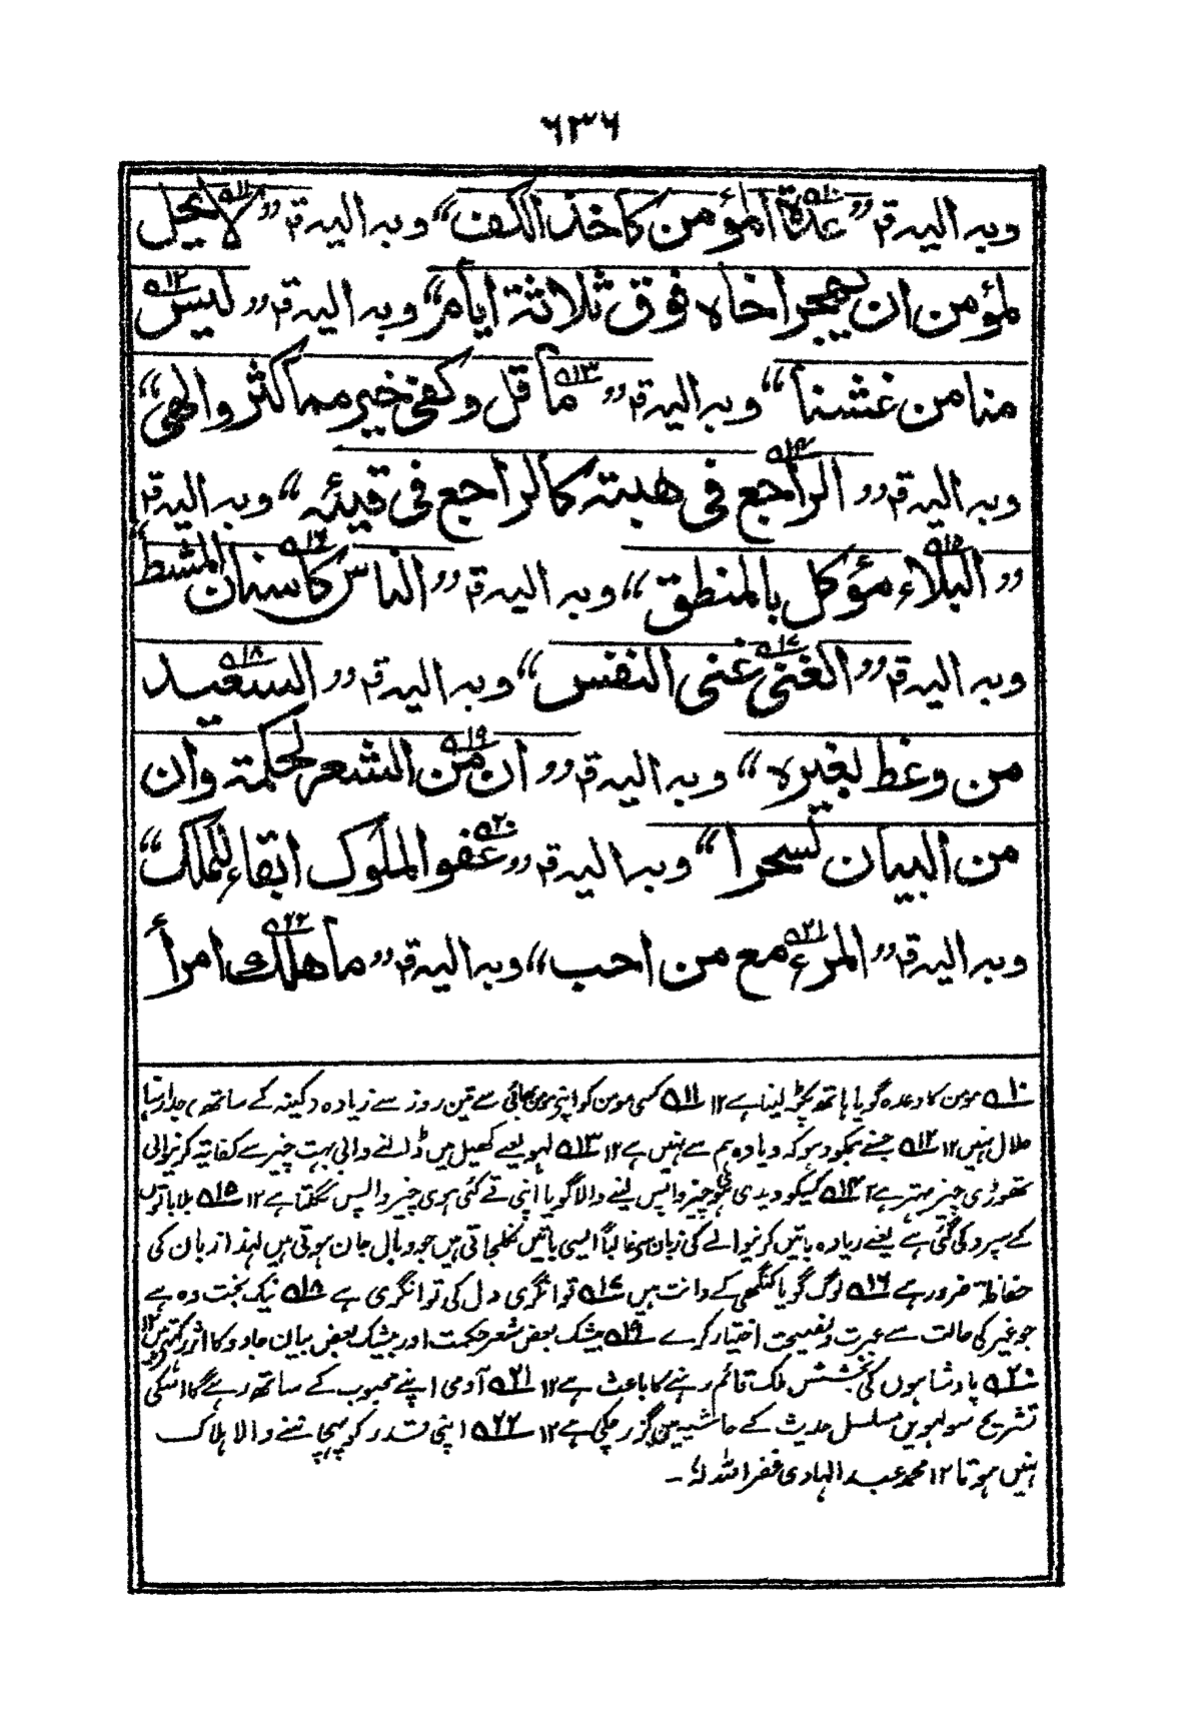 ٦٣٦
وبہ الیہ قہ ”عدة المؤمن كاخذ الكف“ وبہ الیہ قہ ”لا یحل
لمؤمن ان یهجر اخاه فوق ثلاثة ایام“ وبہ الیہ قہ ”لیس
منا من غشنا“ وبہ الیہ قہ ”ما قل وكفى خیر مما كثر والهى“
وبہ الیہ قہ ”الراجع فی هبتہ كالراجع فی قیئہ“ وبہ الیہ قہ
”البلاء مؤكل بالمنطق“ وبہ الیہ قہ ”الناس كاسنان المشط“
وبہ الیہ قہ ”الغنى غنى النفس“ وبہ الیہ قہ ”السعید
من وعظ بغیره“ وبہ الیہ قہ ”ان من الشعر لحكمة وان
من البیان لسحرا“ وبہ الیہ قہ ”عفو الملوك ابقاء للملك“
وبہ الیہ قہ ”المرء مع من احب“ وبہ الیہ قہ ”ما هلك امرأ
۵۱۰ مومن کا وعدہ گویا ہاتھ پکڑ لینا ہے ۱۲ ۵۱۱ کسی مومن کو اپنے مومن بھائی سے تین روز سے زیادہ (کینہ کے ساتھ) جدا رہنا
حلال نہیں ۱۲ ۵۱۲ جسنے ہمکو دہوکہ دیا وہ ہم سے نہیں ہے ۱۲ ۵۱۳ لہو یعنے کھیل میں ڈالنے والی بہت چیز سے کفایتہ کرنیوالی
تھوڑی چیز بہتر ہے ۱۲ ۵۱۴ کسیکو دیدی گئی چیز واپس لینے والا گویا اپنی قے کئی ہوی چیز واپس نگلتا ہے ۱۲ ۵۱۵ بلا باتوں
کے سپرد کی گئی ہے یعنے زیادہ باتیں کرنیوالے کی زبان سے غالباً ایسی باتیں نکلجاتی ہیں جو وبال جان ہوتی ہیں لہذا زبان کی
حفاظتہ ضرور ہے ۵۱۶ لوگ گویا کنگھی کے دانت ہیں ۵۱۷ توانگری دل کی توانگری ہے ۵۱۸ نیک بخت وہ ہے
جو غیر کی حالت سے عبرت و نصیحت اختیار کرے ۵۱۹ بیشک بعض شعر حکمت اور بیشک بعض بیان جادو کا اثر رکھتے ہیں ۱۲
۵۲۰ بادشاہوں کی بخشش ملک قائم رہنے کا باعث ہے ۱۲ ۵۲۱ آدمی اپنے محبوب کے ساتھ رہے گا اسکی
تشریح سولہویں مسلسل حدیث کے حاشیہ میں گزر چکی ہے ۱۲ ۵۲۲ اپنی قدر کو پہچاننے والا ہلاک
نہیں ہوتا ۱۲ محمد عبد الہادی غفر اللہ لہٗ ۔